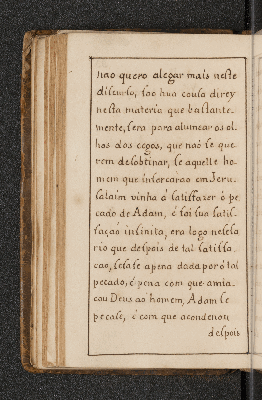 nao quero alegar mais neste
discurso, so hua cousa direy
nesta materia que bastante-
mente, sera para alumear os ol
hos dos cegos, que nao se que
rem desobstinar, se aquelle ho-
mem que enforcarao em Jeru-
salaim vinha a satisfazer o pe
cado de Adam, e foi sua satis-
façao infinita, era logo nessesa
rio que despois de tal satisfa
cao, sesase a pena dada por o tal
pecado, e pena com que amea-
cou Deus ao homem, Adam se
pecase, e com que acondenou
despois